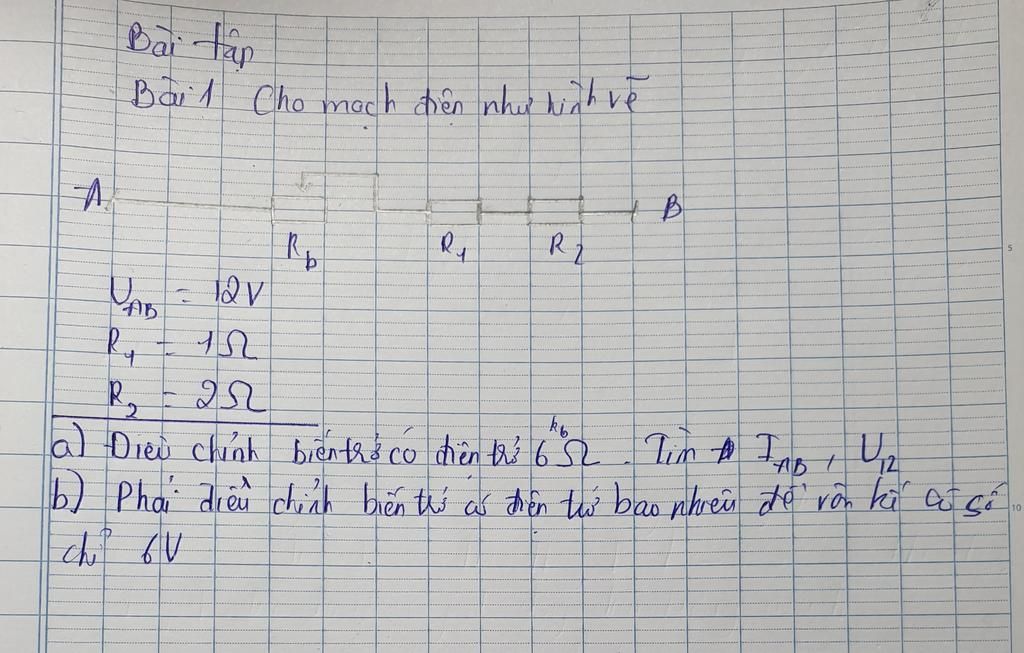 Bài tập
Bài 1 Cho mạch điện như hình vẽ
A B
R_b R_1 R_2
U_AB = 12V
R_1 = 1Ω
R_2 = 2Ω
R_b
a) Điều chỉnh biến trở có điện trở 6Ω. Tìm I_AB, U_12
b) Phải điều chỉnh biến trở có điện trở bao nhiêu để vôn kế có số
chỉ 6V
5
10